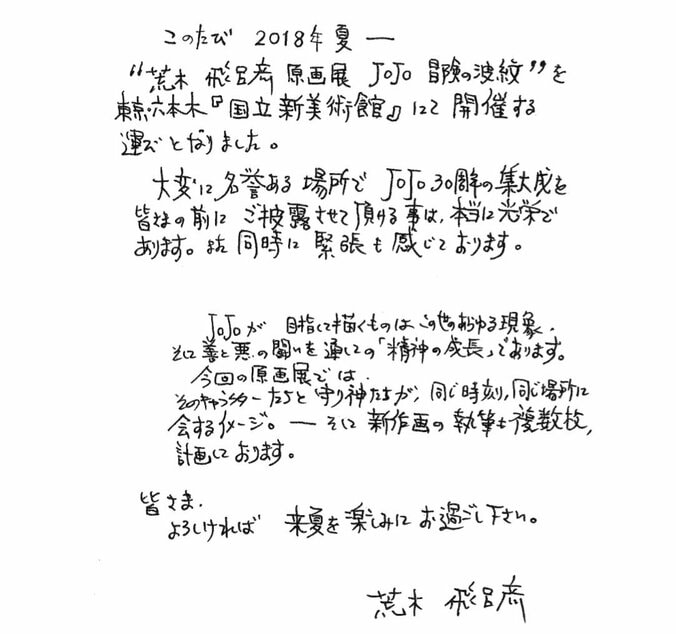 このたび 2018年 夏 —
“荒木 飛呂彦 原画展 JoJo 冒険の波紋”を
東京・六本木『国立新美術館』にて 開催する
運びとなりました。
大変に 名誉ある 場所で JoJo 30周年の集大成を
皆さまの前に ご披露させて頂ける事は、本当に光栄で
あります。また 同時に 緊張も 感じております。
JoJoが 目指して描くものは この世のあらゆる現象、
そして善と悪の闘いを通しての「精神の成長」であります。
今回の原画展では、
そのキャラクターたちと守り神たちが、同じ時刻、同じ場所に
会するイメージ。— そして 新作画の執筆も複数枚、
計画しております。
皆さま、
よろしければ 来夏を楽しみに お過ごし下さい。
荒木 飛呂彦